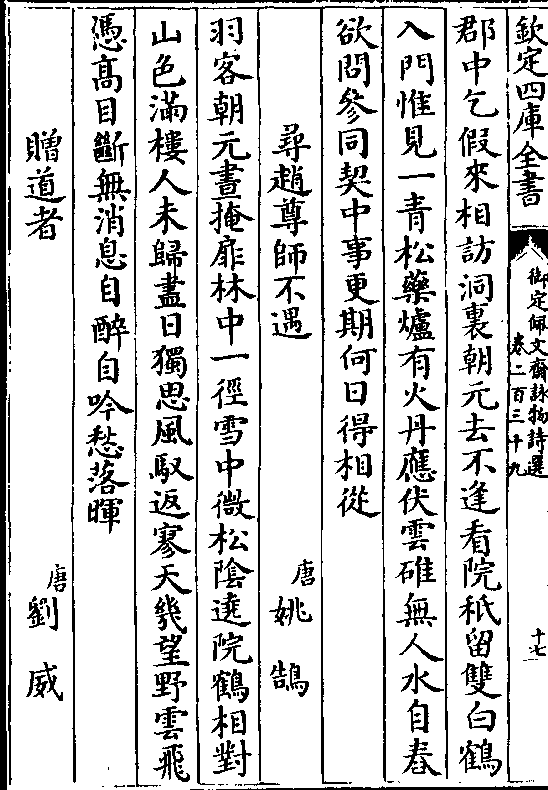 欽定四庫全書
御定佩文齋詠物詩選
卷二百三十九
十七
郡中乞假來相訪洞裏朝元去不逢看院秖留雙白鶴
入門惟見一青松藥爐有火丹應伏雲碓無人水自舂
欲問參同契中事更期何日得相從
尋趙尊師不遇
唐姚鵠
羽客朝元晝掩扉林中一徑雪中微松陰遶院鶴相對
山色滿樓人未歸盡日獨思風馭返寥天幾望野雲飛
憑高目斷無消息自醉自吟愁落暉
贈道者
唐劉威